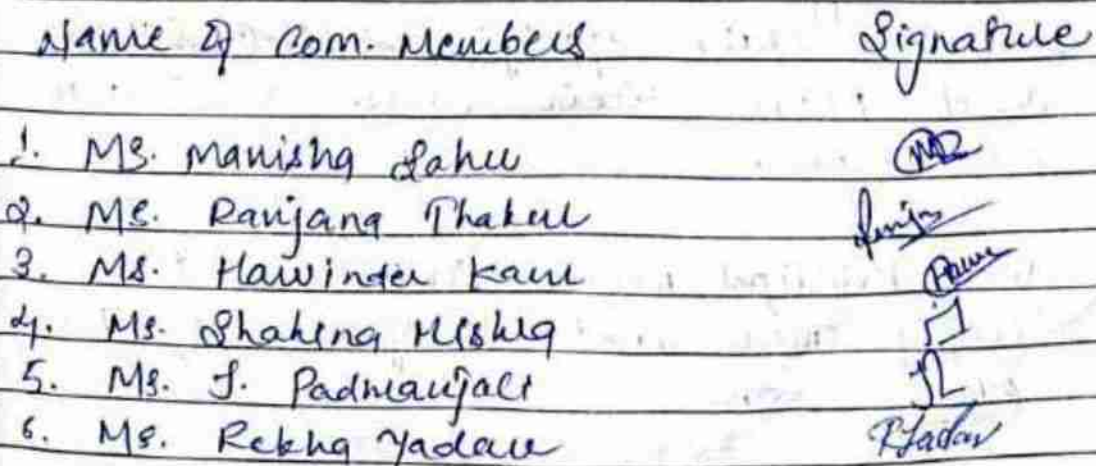 Name of Com. Members Signature
1. Ms. Manisha Sahu
2. Ms. Ranjana Thakur
3. Ms. Harvinder Kaur
4. Ms. Shahina Mishra
5. Ms. J. Padmanjali
6. Ms. Rekha Yadav RYadav